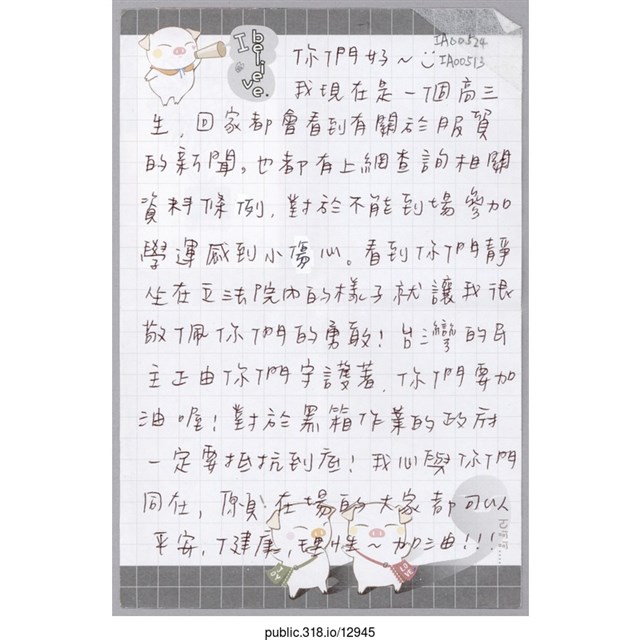 I believe.
IA00524
IA00513
你們好~
我現在是一個高三
生,回家都會看到有關於服貿
的新聞。也都有上網查詢相關
資料條例,對於不能到場參加
學運感到小傷心。看到你們靜
坐在立法院內的樣子就讓我很
敬佩你們的勇敢!台灣的民
主正由你們守護著,你們要加
油喔!對於黑箱作業的政府
一定要抵抗到底!我心與你們
同在,願在場的大家都可以
平安,健康,理性~加油!!!
public.318.io/12945